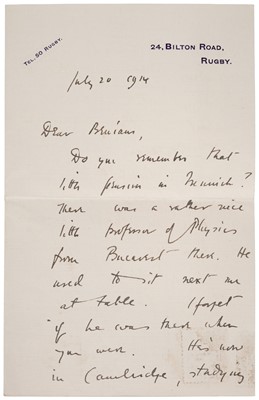 TEL. 50 RUGBY.
24, BILTON ROAD,
RUGBY.
July 20 1914
Dear
Do you remember that
little pension in Munich?
There was a rather nice
little Professor of Physics
from Bucarest there. He
used to sit next me
at table. I forget
if he was there when
you were. He's now
in Cambridge, studying